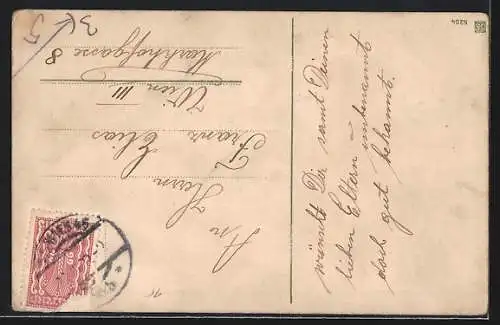 wünscht Dir samt Deinen
lieben Eltern unbenannt
doch gut bekannt.
An
Herrn
Franz Elias
Wien III
Markhofgasse 8
5204
3K
5